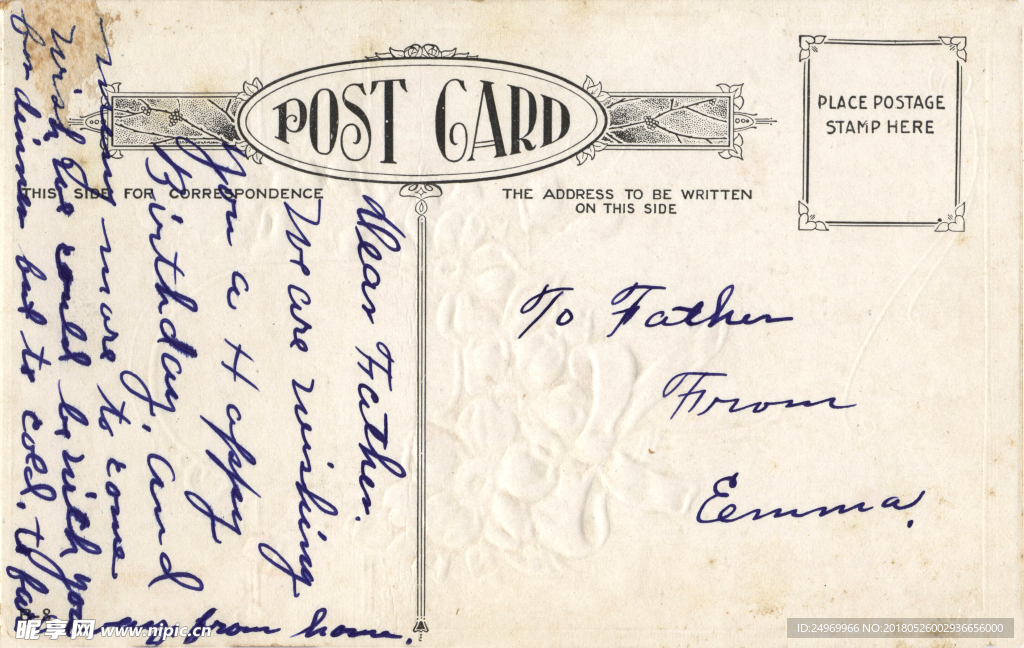 POST CARD
PLACE POSTAGE
STAMP HERE
THIS SIDE FOR CORRESPONDENCE
THE ADDRESS TO BE WRITTEN
ON THIS SIDE
Dear Father.
We are wishing
you a Happy
Birthday, and
many more to come
Wish we could be with you
for dinner but to cold. & far
away from home.
To Father
From
Emma.
昵享网 www.nipic.cn
ID:24969966 NO:20180526002936656000